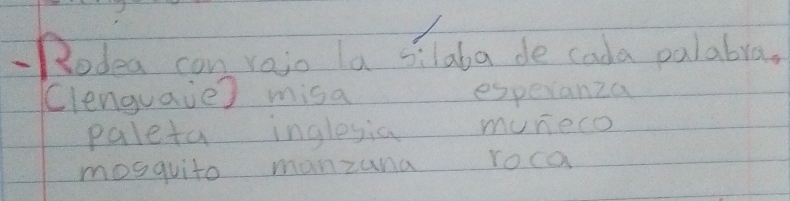 -Rodea con rojo la sílaba de cada palabra.
(lenguaje) misa esperanza
paleta inglesia muñeco
mosquito manzana roca